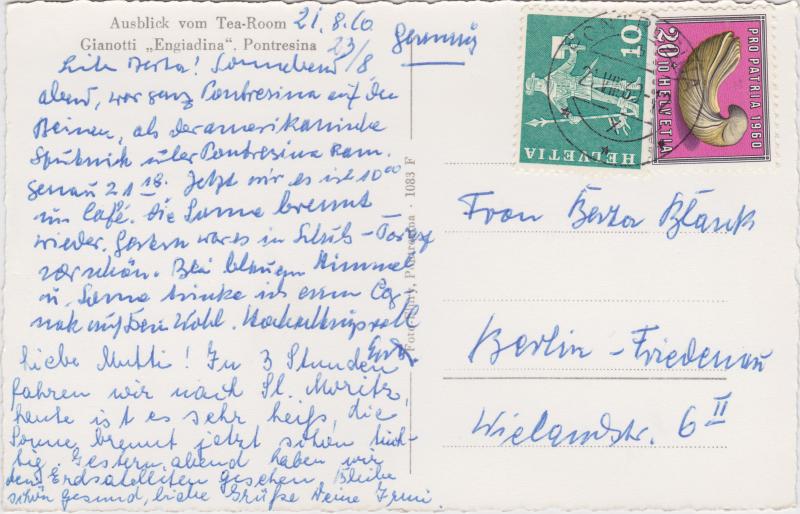 Ausblick vom Tea-Room 21.8.60
Gianotti „Engiadina“. Pontresina 23/8
Germany
Liebe Berta! Sonnabend
abend, war ganz Pontresina auf den
Beinen, als der amerikanische
Sputnick über Pontresina kam.
genau 21 18. Jetzt wo es ist 10 00
im Café. die Sonne brennt
wieder. Gestern war es in Schuls-Tarasp
sehr schön. Bei blauem Himmel
u. Sonne trinke ich einen Cog
nak auf Dein Wohl. Hochachtungsvoll
Liebe Mutti! In 3 Stunden
fahren wir nach St. Moritz,
heute ist es sehr heiß, die
Sonne brennt jetzt schon tüch-
tig. Gestern abend haben wir
den Erdsatelliten gesehen. Bleibe
schön gesund, liebe Grüße Deine Irmi.
Pontresina · 1083 F
10
HELVETIA
PRO PATRIA 1960
20+10 HELVETIA
Frau Berta Blanck
Berlin-Friedenau
Wielandstr. 6 II